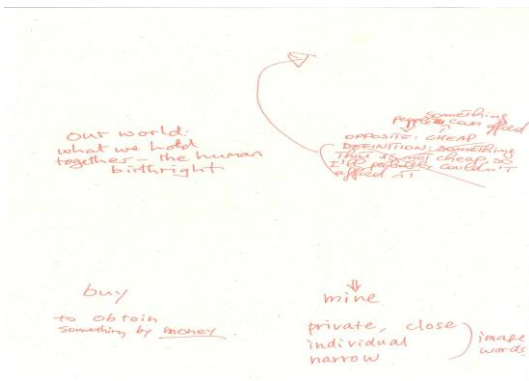 our world:
what we hold
together - the human
birthright.
something
people can afford
OPPOSITE: CHEAP
DEFINITION: something
This is not cheap, so
people couldn't
afford it
buy
to obtain
something by money.
mine
private, close
individual
narrow
image
words